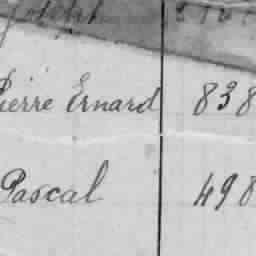 Joseph
Pierre Ernard 838
Pascal 498